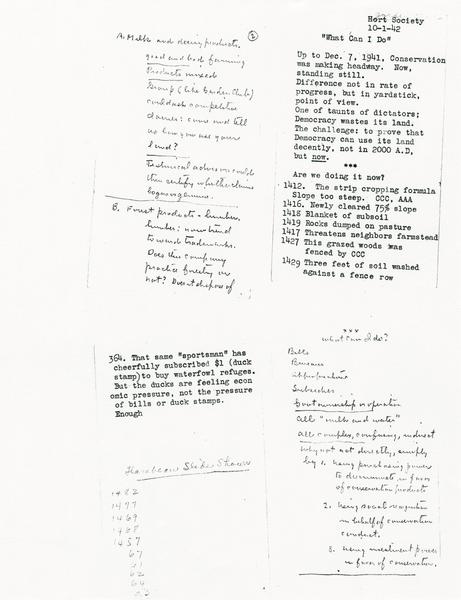 A. Milk and dairy products.
good and bad farming
Products mixed
Group (like Garden Club)
could ask competitive
dairies: come and tell
us how you use your
land?
Technical advisors could
then certify whether claims
bogus or genuine.
B. Forest products - lumber.
Lumber: now a trend
toward trademarks.
Does this company
practice forestry or
not? Does it dispose of
2
Hort Society
10-1-42
"What Can I Do"
Up to Dec. 7, 1941, Conservation
was making headway. Now,
standing still.
Difference not in rate of
progress, but in yardstick,
point of view.
One of taunts of dictators;
Democracy wastes its land.
The challenge: to prove that
Democracy can use its land
decently, not in 2000 A.D,
but now.
***
Are we doing it now?
1412. The strip cropping formula
Slope too steep. CCC, AAA
1416. Newly cleared 75% slope
1418 Blanket of subsoil
1419 Rocks dumped on pasture
1417 Threatens neighbors farmstead
1427 This grazed woods was
fenced by CCC
1429 Three feet of soil washed
against a fence row
364. That same "sportsman" has
cheerfully subscribed $1 (duck
stamp) to buy waterfowl refuges.
But the ducks are feeling econ
omic pressure, not the pressure
of bills or duck stamps.
Enough
Slides Shown
1482
1477
1469
1468
1457
67
61
62
64
***
What can I do?
Bills
Bureaus
Appropriations
Subsidies
Govt ownership or operation
All "milk and water"
All complex, confusing, indirect
Why not act directly, simply
by 1. using purchasing power
to discriminate in favor
of conservation products
2. Using social recognition
in behalf of conservation
conduct.
3. Using investment power
in favor of conservation.